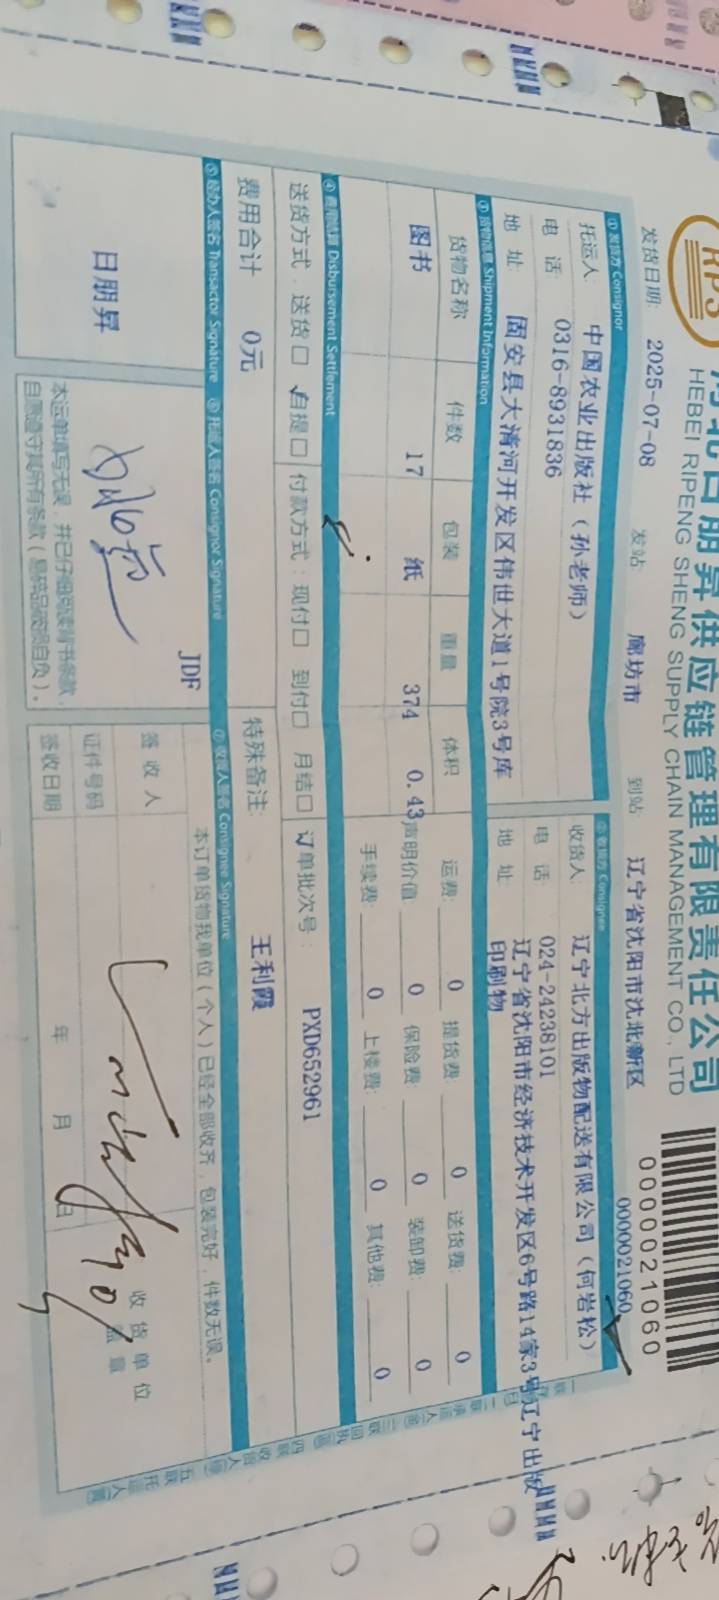 RPS
河北日朋昇供应链管理有限责任公司
HEBEI RIPENG SHENG SUPPLY CHAIN MANAGEMENT CO., LTD
0000021060
0000021060
发货日期: 2025-07-08 发站: 廊坊市 到站: 辽宁省沈阳市沈北新区
① 发货方 Consignor ② 收货方 Consignee
托运人: 中国农业出版社（孙老师） 收货人: 辽宁北方出版物配送有限公司（何岩松）
电 话: 0316-8931836 电 话: 024-24238101
地 址: 固安县大清河开发区伟世大道1号院3号库 地 址: 辽宁省沈阳市经济技术开发区6号路14家3号辽宁出版
印刷物
③ 货物信息 Shipment Information
货物名称 件数 包装 重量 体积 运费: 0 提货费: 0 送货费: 0
图书 17 纸 374 0.43 声明价值: 0 保险费: 0 装卸费: 0
手续费: 0 上楼费: 0 其他费: 0
④ 费用结算 Disbursement Settlement
送货方式: 送货☐ 自提☐ 付款方式: 现付☐ 到付☐ 月结☐ 订单批次号: PXD652961
费用合计 0元 特殊备注: 王利霞
⑤ 经办人签名 Transactor Signature ⑥ 托运人签名 Consignor Signature ⑦ 收货人签名 Consignee Signature
日朋昇
JDF
本运单填写无误，并已仔细阅读背书条款，
自愿遵守其所有条款（易碎品破损自负）。
本订单货物我单位（个人）已经全部收齐，包装完好，件数无误。
签 收 人
证件号码
签收日期 年 月 日
收货单位
盖章